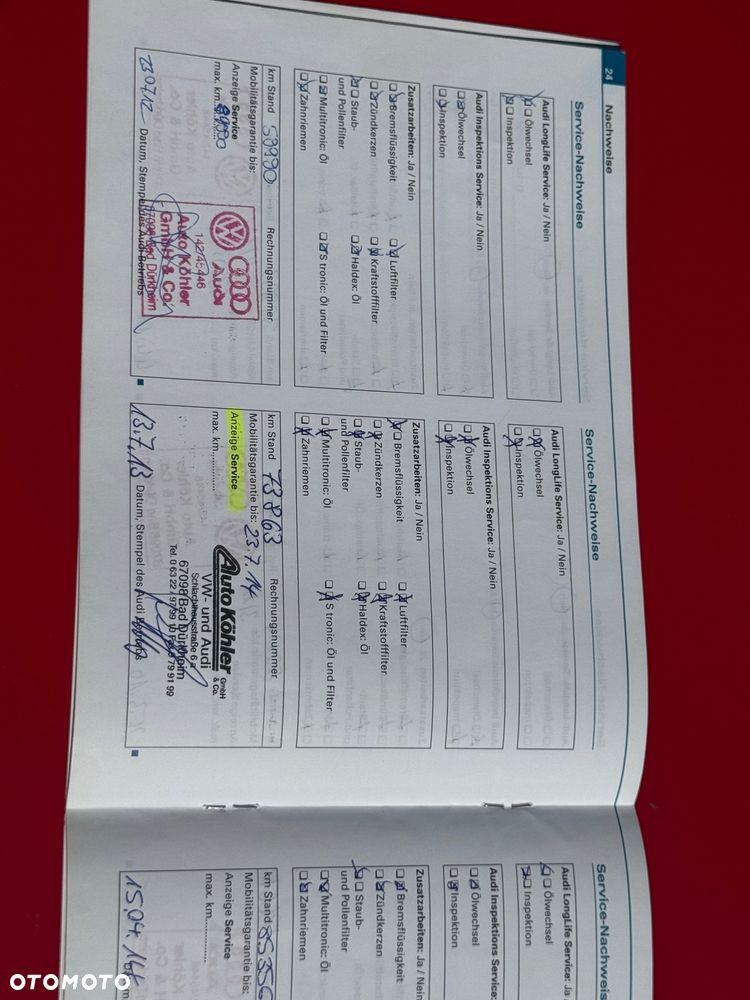 24
Nachweise
Service-Nachweise
Audi LongLife Service: Ja / Nein
Ölwechsel
Inspektion
Audi Inspektions Service: Ja / Nein
Ölwechsel
Inspektion
Zusatzarbeiten: Ja / Nein
Bremsflüssigkeit
Luftfilter
Zündkerzen
Kraftstofffilter
Staub-
und Pollenfilter
Haldex: Öl
Multitronic: Öl
S tronic: Öl und Filter
Zahnriemen
km Stand 58990 Rechnungsnummer
Mobilitätsgarantie bis:
Anzeige Service
max. km
Audi
Auto Köhler
GmbH & Co.
67098 Bad Dürkheim
Datum, Stempel des Audi Betriebs
Service-Nachweise
Audi LongLife Service: Ja / Nein
Ölwechsel
Inspektion
Audi Inspektions Service: Ja / Nein
Ölwechsel
Inspektion
Zusatzarbeiten: Ja / Nein
Bremsflüssigkeit
Luftfilter
Zündkerzen
Kraftstofffilter
Staub-
und Pollenfilter
Haldex: Öl
Multitronic: Öl
S tronic: Öl und Filter
Zahnriemen
km Stand 73863 Rechnungsnummer
Mobilitätsgarantie bis: 23.7.14
Anzeige Service
max. km.............
Auto Köhler GmbH & Co.
VW- und Audi
Schlachthausstraße 6 a
67098 Bad Dürkheim
13.7.13 Datum, Stempel des Audi
Service-Nachweis
Audi LongLife Service: Ja
Ölwechsel
Inspektion
Audi Inspektions Service:
Ölwechsel
Inspektion
Zusatzarbeiten: Ja / Nein
Bremsflüssigkeit
Zündkerzen
Staub-
und Pollenfilter
Multitronic: Öl
Zahnriemen
km Stand 85356
Mobilitätsgarantie bis:
Anzeige Service
max. km.............
OTOMOTO